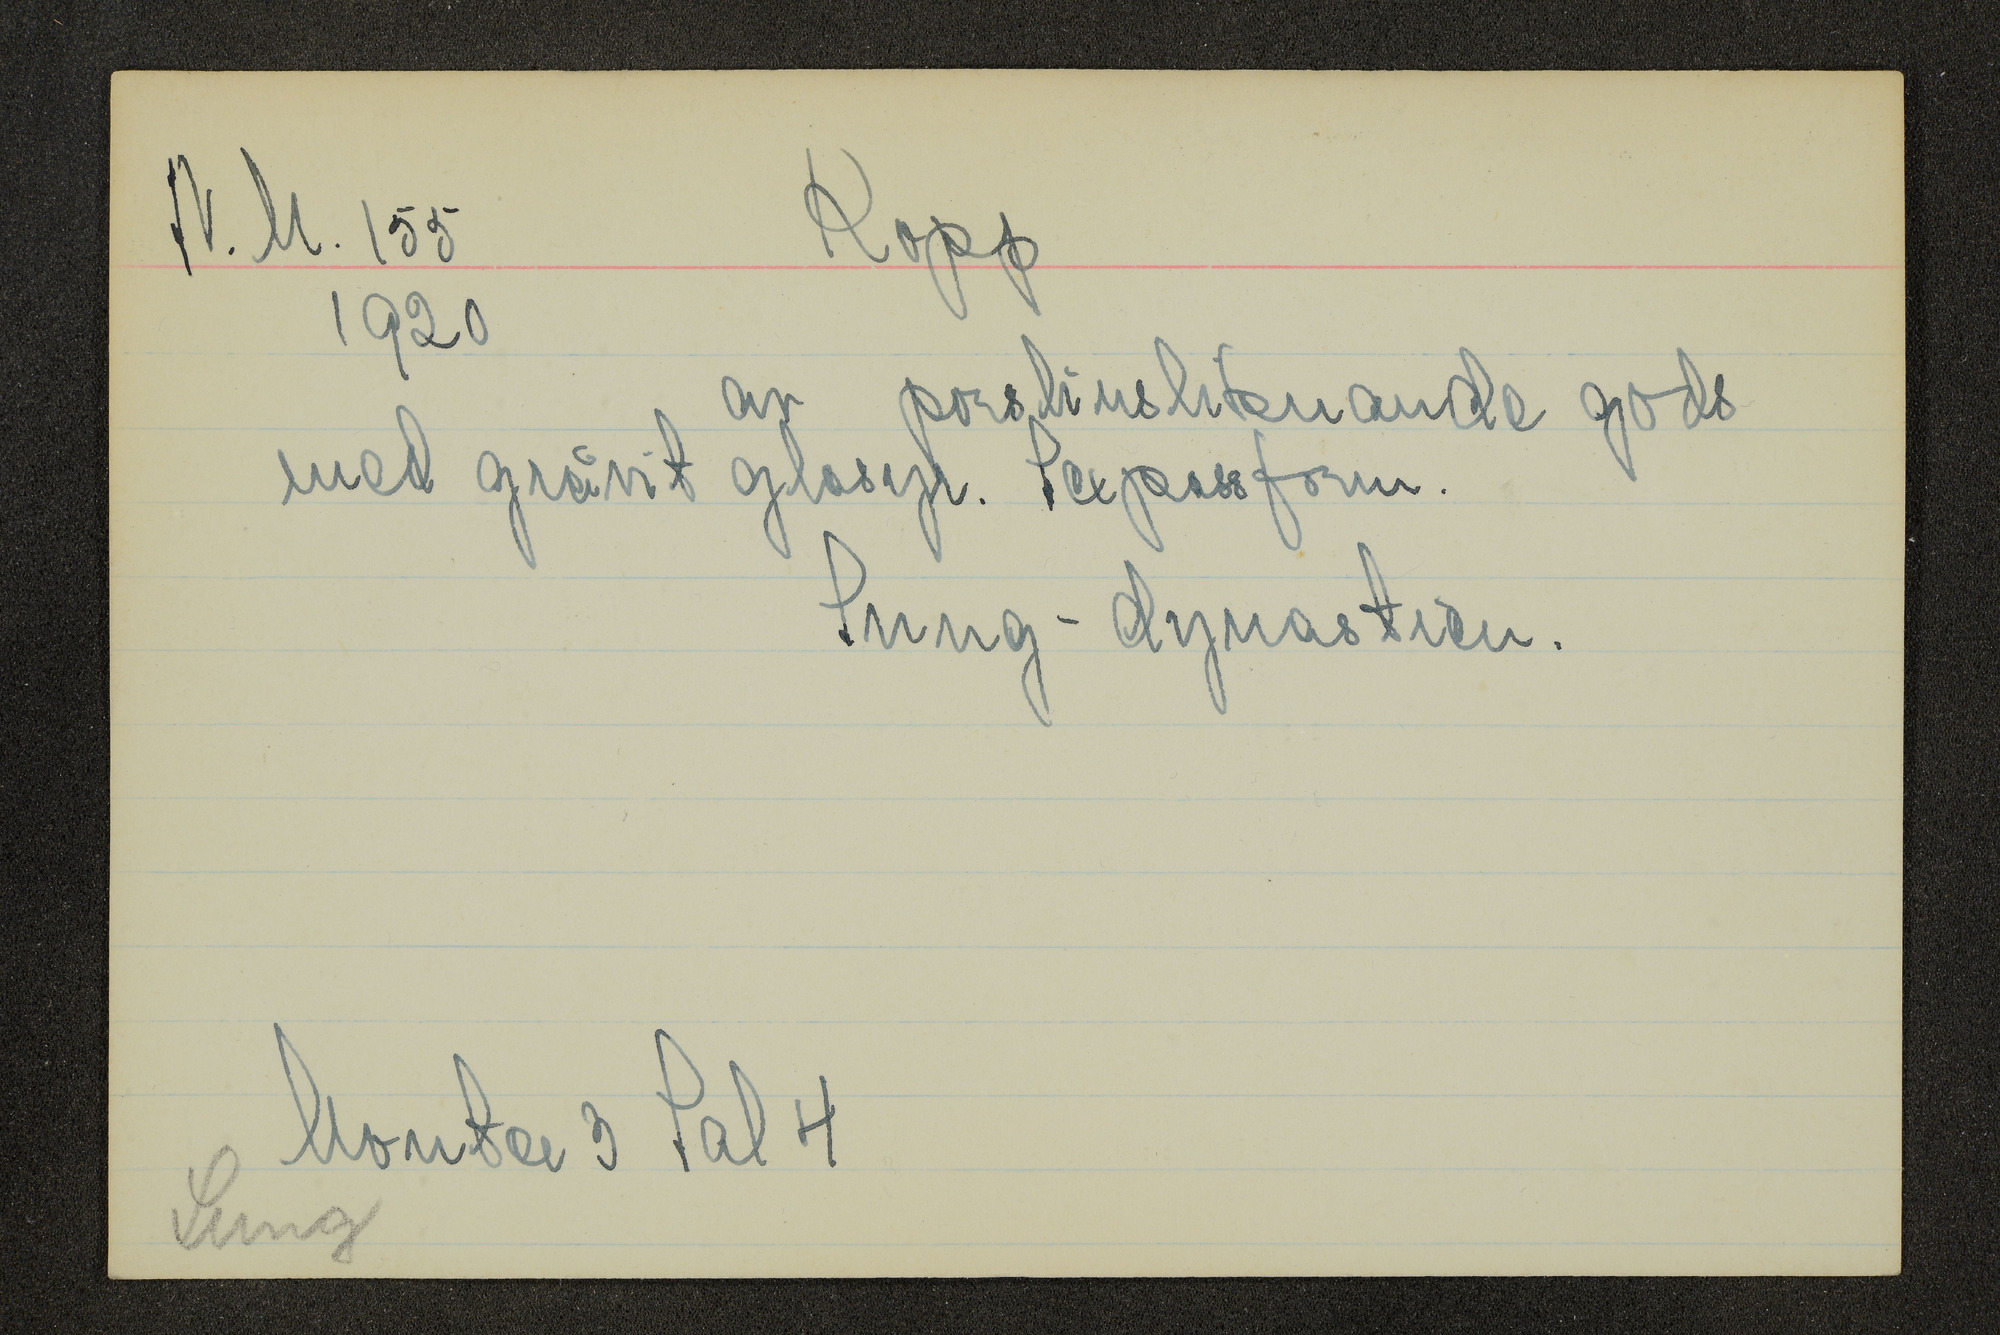 N.M. 155 Kopp
1920
av porslinsliknande gods
med gråvit glasyr. Sexpassform.
Sung-dynastien.
Monter 3 Sal 4
Sung